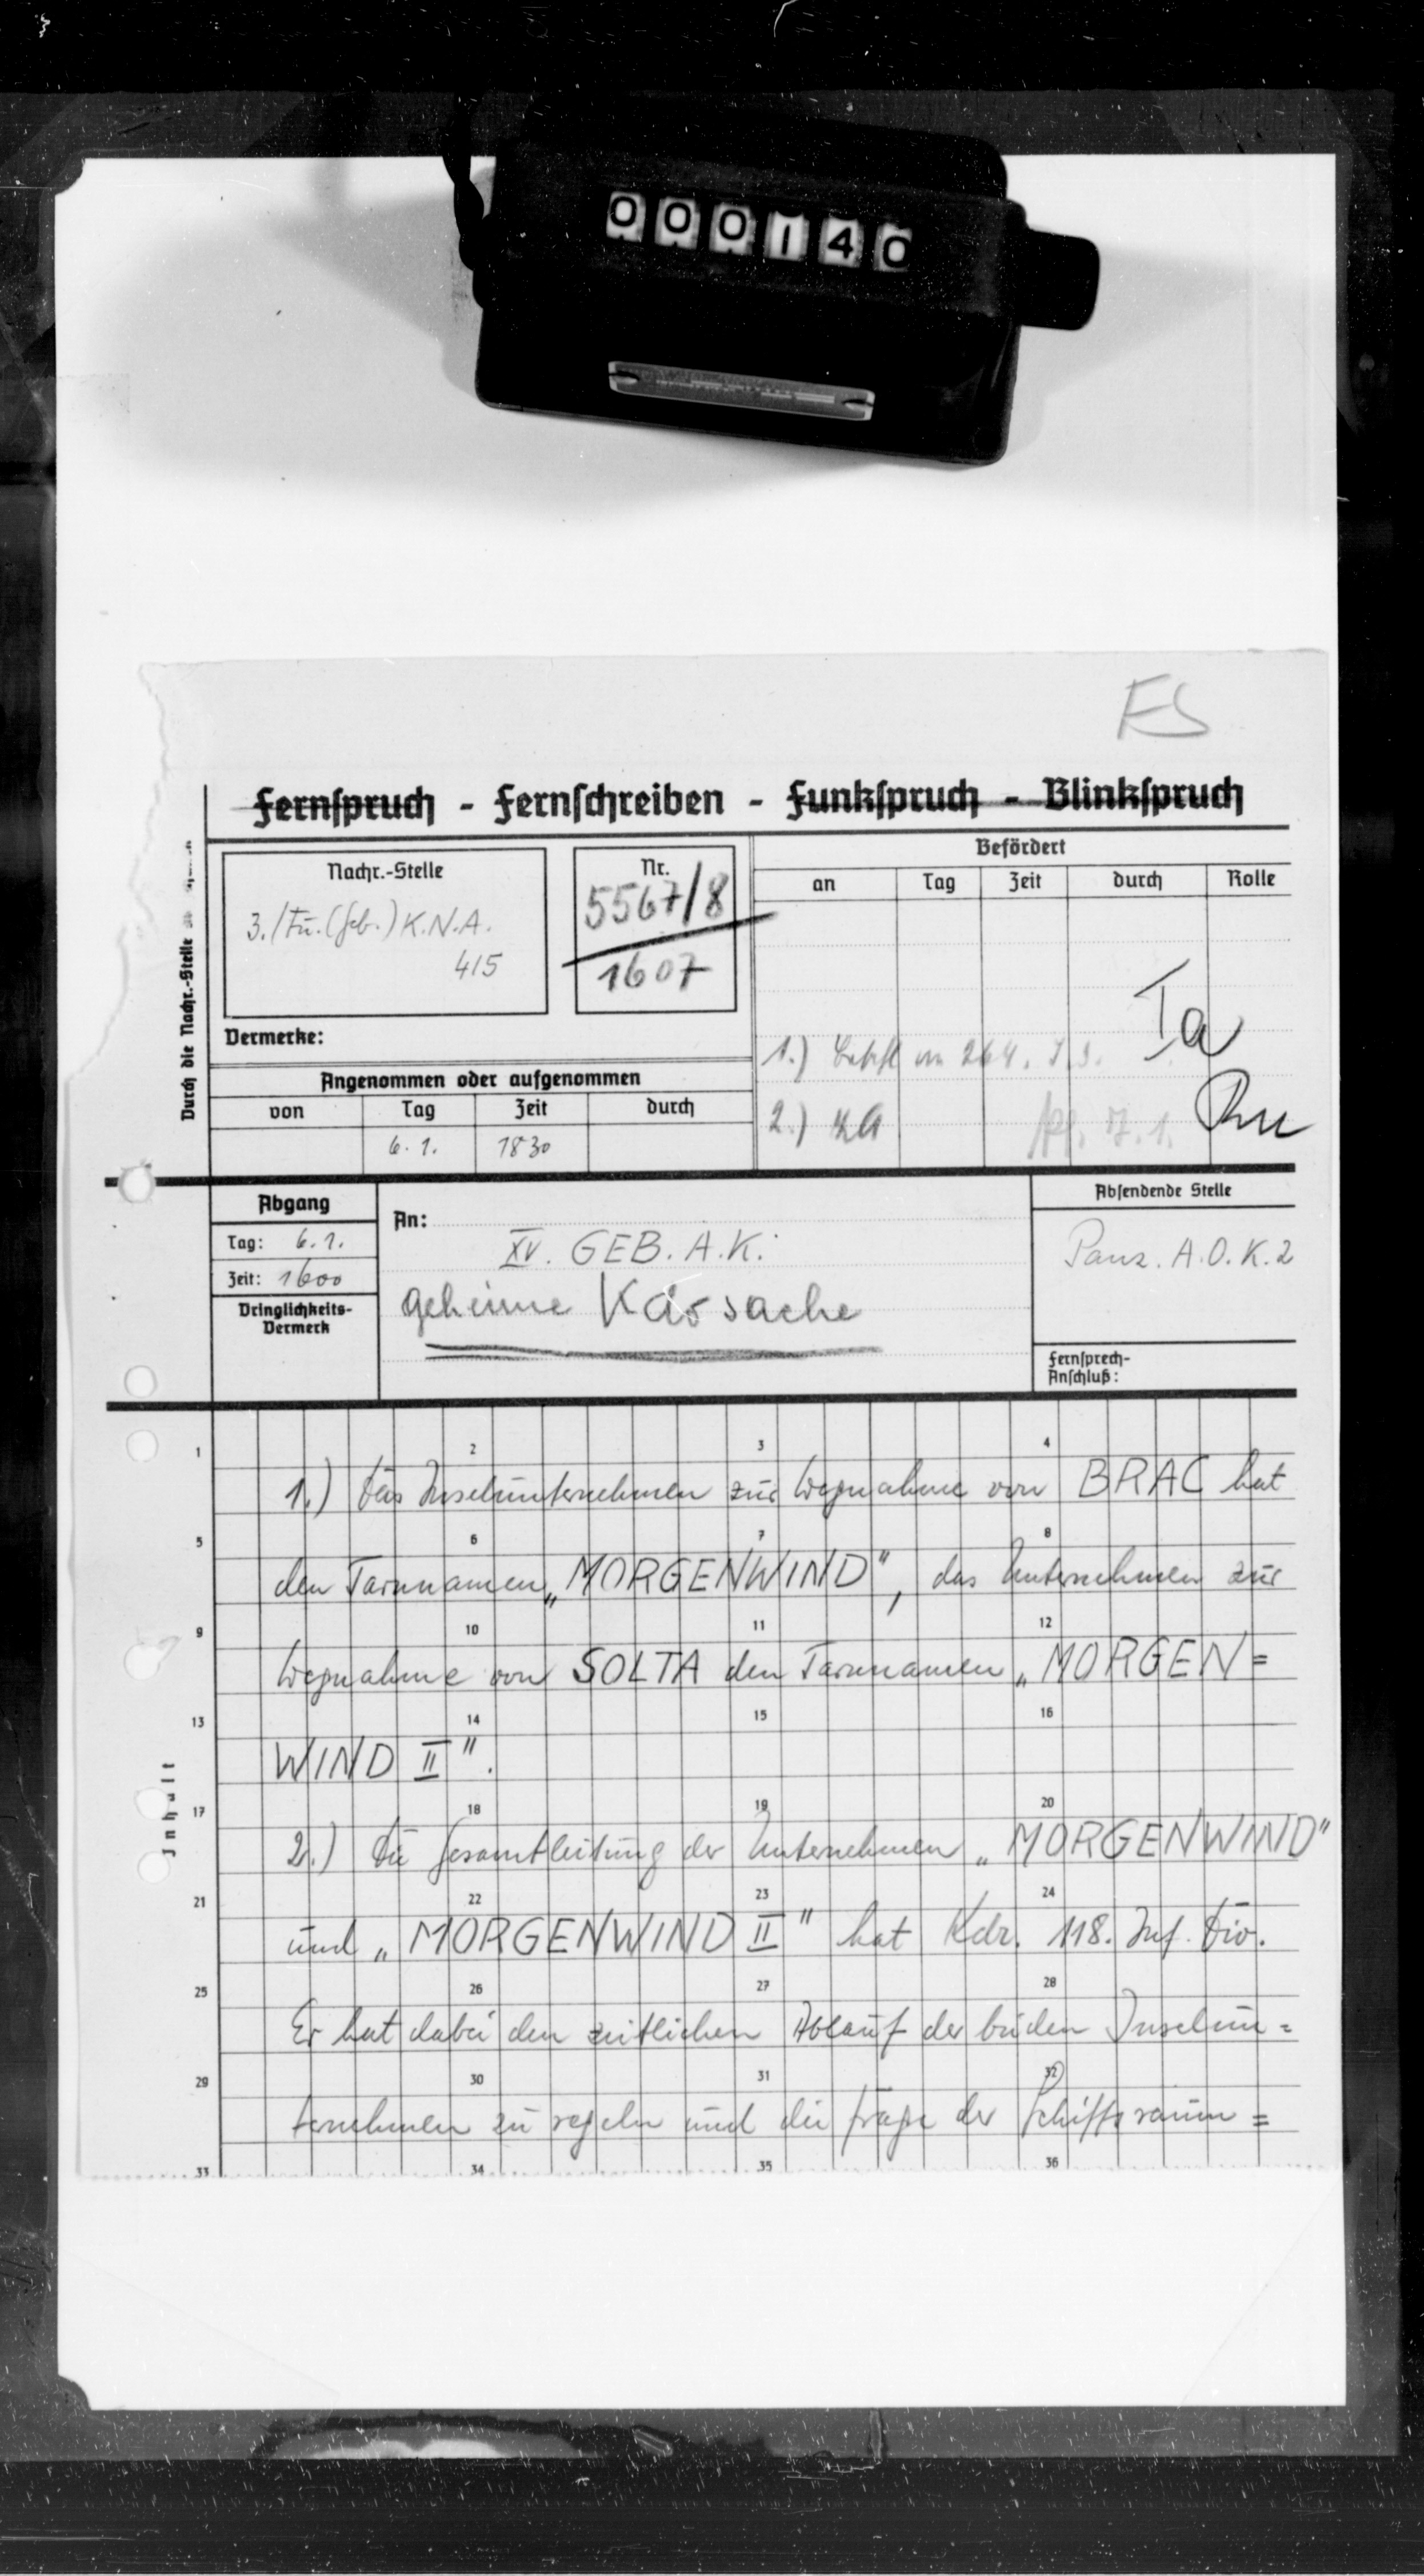 000140
FS
Fernspruch - Fernschreiben - Funkspruch - Blinkspruch
Durch die Nachr.-Stelle
Nachr.-Stelle
3./Fü.(Geb.) K.N.A.
415
Nr.
5567/8
1607
Befördert
an Tag Zeit durch Rolle
Vermerke:
Angenommen oder aufgenommen
von Tag Zeit durch
6.1. 1830
Ia
1.) 264. I.D.
2.) 7.1.
Abgang
Tag: 6.1.
Zeit: 1600
Dringlichkeits-
Vermerk
An:
XV. GEB. A.K.
geheime Kdosache
Absendende Stelle
Panz. A.O.K. 2
Fernsprech-
Anschluß:
Inhalt
1 2 3 4
1.) Das Inselunternehmen zur Wegnahme von BRAC hat
5 6 7 8
den Tarnnamen „MORGENWIND", das Unternehmen zur
9 10 11 12
Wegnahme von SOLTA den Tarnnamen „MORGEN=
13 14 15 16
WIND II".
17 18 19 20
2.) Die Gesamtleitung der Unternehmen „MORGENWIND"
21 22 23 24
und „MORGENWIND II" hat Kdr. 118. Inf. Div.
25 26 27 28
Er hat dabei den zeitlichen Ablauf der beiden Inselun=
29 30 31 32
ternehmen zu regeln und die Frage der Schiffsraum=
33 34 35 36